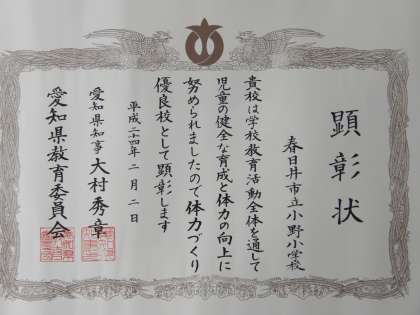 顕彰状
春日井市立小野小学校
貴校は学校教育活動全体を通して
児童の健全な育成と体力の向上に
努められましたので体力づくり
優良校として顕彰します
平成二十四年二月二日
愛知県知事 大村秀章
愛知県教育委員会